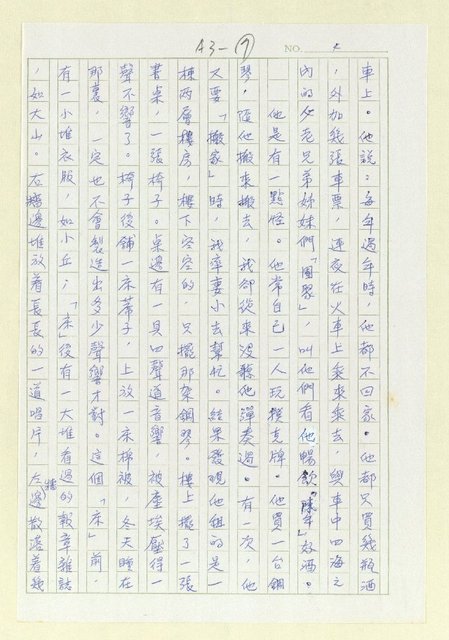 A3-⑦
NO.
車上。他說：每年過年時，他都不回家。他都只買幾瓶酒
，外加幾張車票，連夜在火車上乘來乘去，與車中四海之
內的父老兄弟姊妹們「團聚」，叫他們看他暢飲「陳年」好酒。
他是有一點怪。他常自己一人玩撲克牌。他買一台鋼
琴，隨他搬來搬去，我卻從來沒聽他彈奏過。有一次，他
又要「搬家」時，我率妻小去幫忙。結果發現他租的是一
棟兩層樓房，樓下空空的，只擺那架鋼琴。樓上擺了一張
書桌，一張椅子。桌邊有一具四聲道音響，被塵埃壓得一
聲不響了。椅子後舖一床蓆子，上放一床棉被，冬天睡在
那裏，一定也不會製造出多少聲響才對。這個「床」前，
有一小堆衣服，如小丘；「床」後有一大堆看過的報章雜誌
，如大山。右牆邊堆放着長長的一道唱片，左牆邊散落着幾